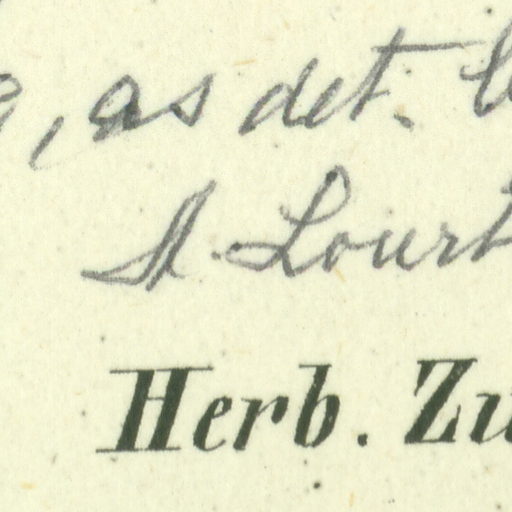 , as det.
A. Lourt
Herb. Zu